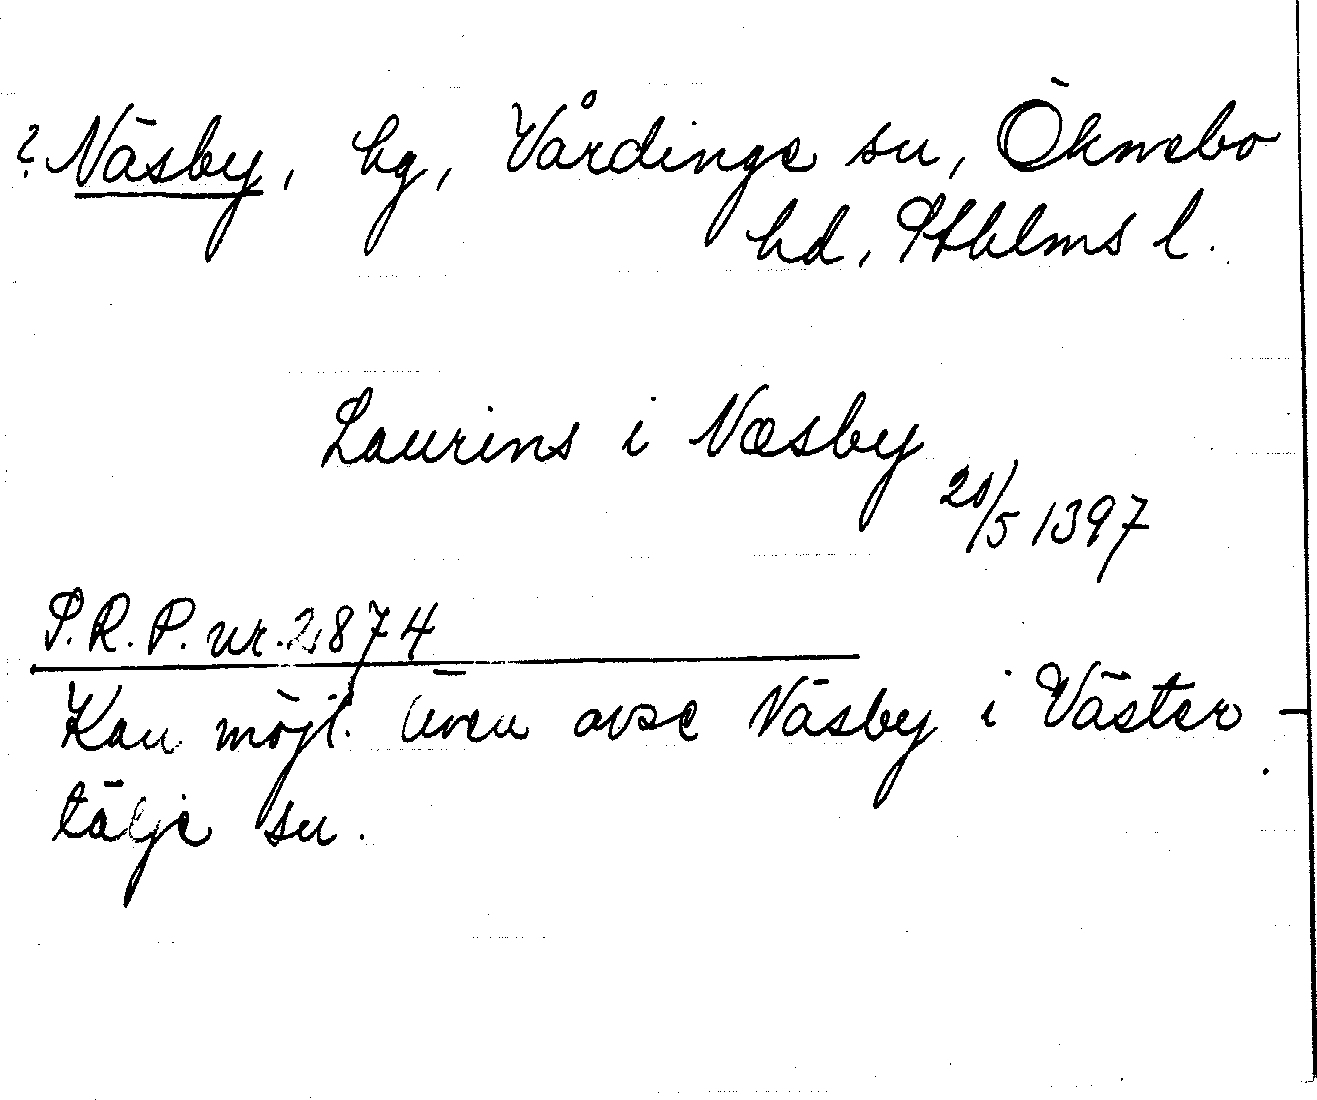 ? Näsby, hg, Vårdinge sn, Öknebo
hd, Sthlms l.
Laurens i Næsby
20/5 1397
S.R.P. nr. 2874
Kan möjl. även avse Näsby i Väster-
tälje sn.